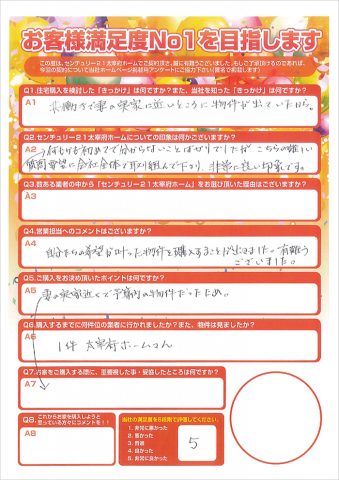 お客様満足度No1を目指します
この度は、センチュリー21太宰府ホームでご契約頂き、誠に有難うございました。もしご了承頂けるのであれば、
今回の契約について当社ホームページ掲載用アンケートにご協力下さい(匿名で掲載します)
Q1.住宅購入を検討した「きっかけ」は何ですか?また、当社を知った「きっかけ」は何ですか?
A1
で妻の実家に近いところに物件が出ていたから。
Q2.センチュリー21太宰府ホームについての印象は何かございますか?
A2
初めてで分からないことばかりでしたが こちらの難しい
質問要望に会社全体で取り組んで下さり、非常に良い印象です。
Q3.数ある業者の中から「センチュリー21太宰府ホーム」をお選び頂いた理由はございますか?
A3
Q4.営業担当へのコメントはございますか?
A4
自分たちの希望が叶った物件を購入することができました。有難う
ございました。
Q5.ご購入をお決め頂いたポイントは何ですか?
A5
妻の実家近くで予算内の物件だったため。
Q6.購入するまでに何件位の業者に行かれましたか?また、物件は見ましたか?
A6
1件 太宰府ホームさん
Q7.お家をご購入する際に、重要視した事・妥協したところは何ですか?
A7
Q8.これからお家を購入しようと
思っている方々にコメントを!!
A8
当社の満足度を5段階で評価してください。
1. 非常に悪かった
2. 悪かった
3. 普通
4. 良かった
5. 非常に良かった
5